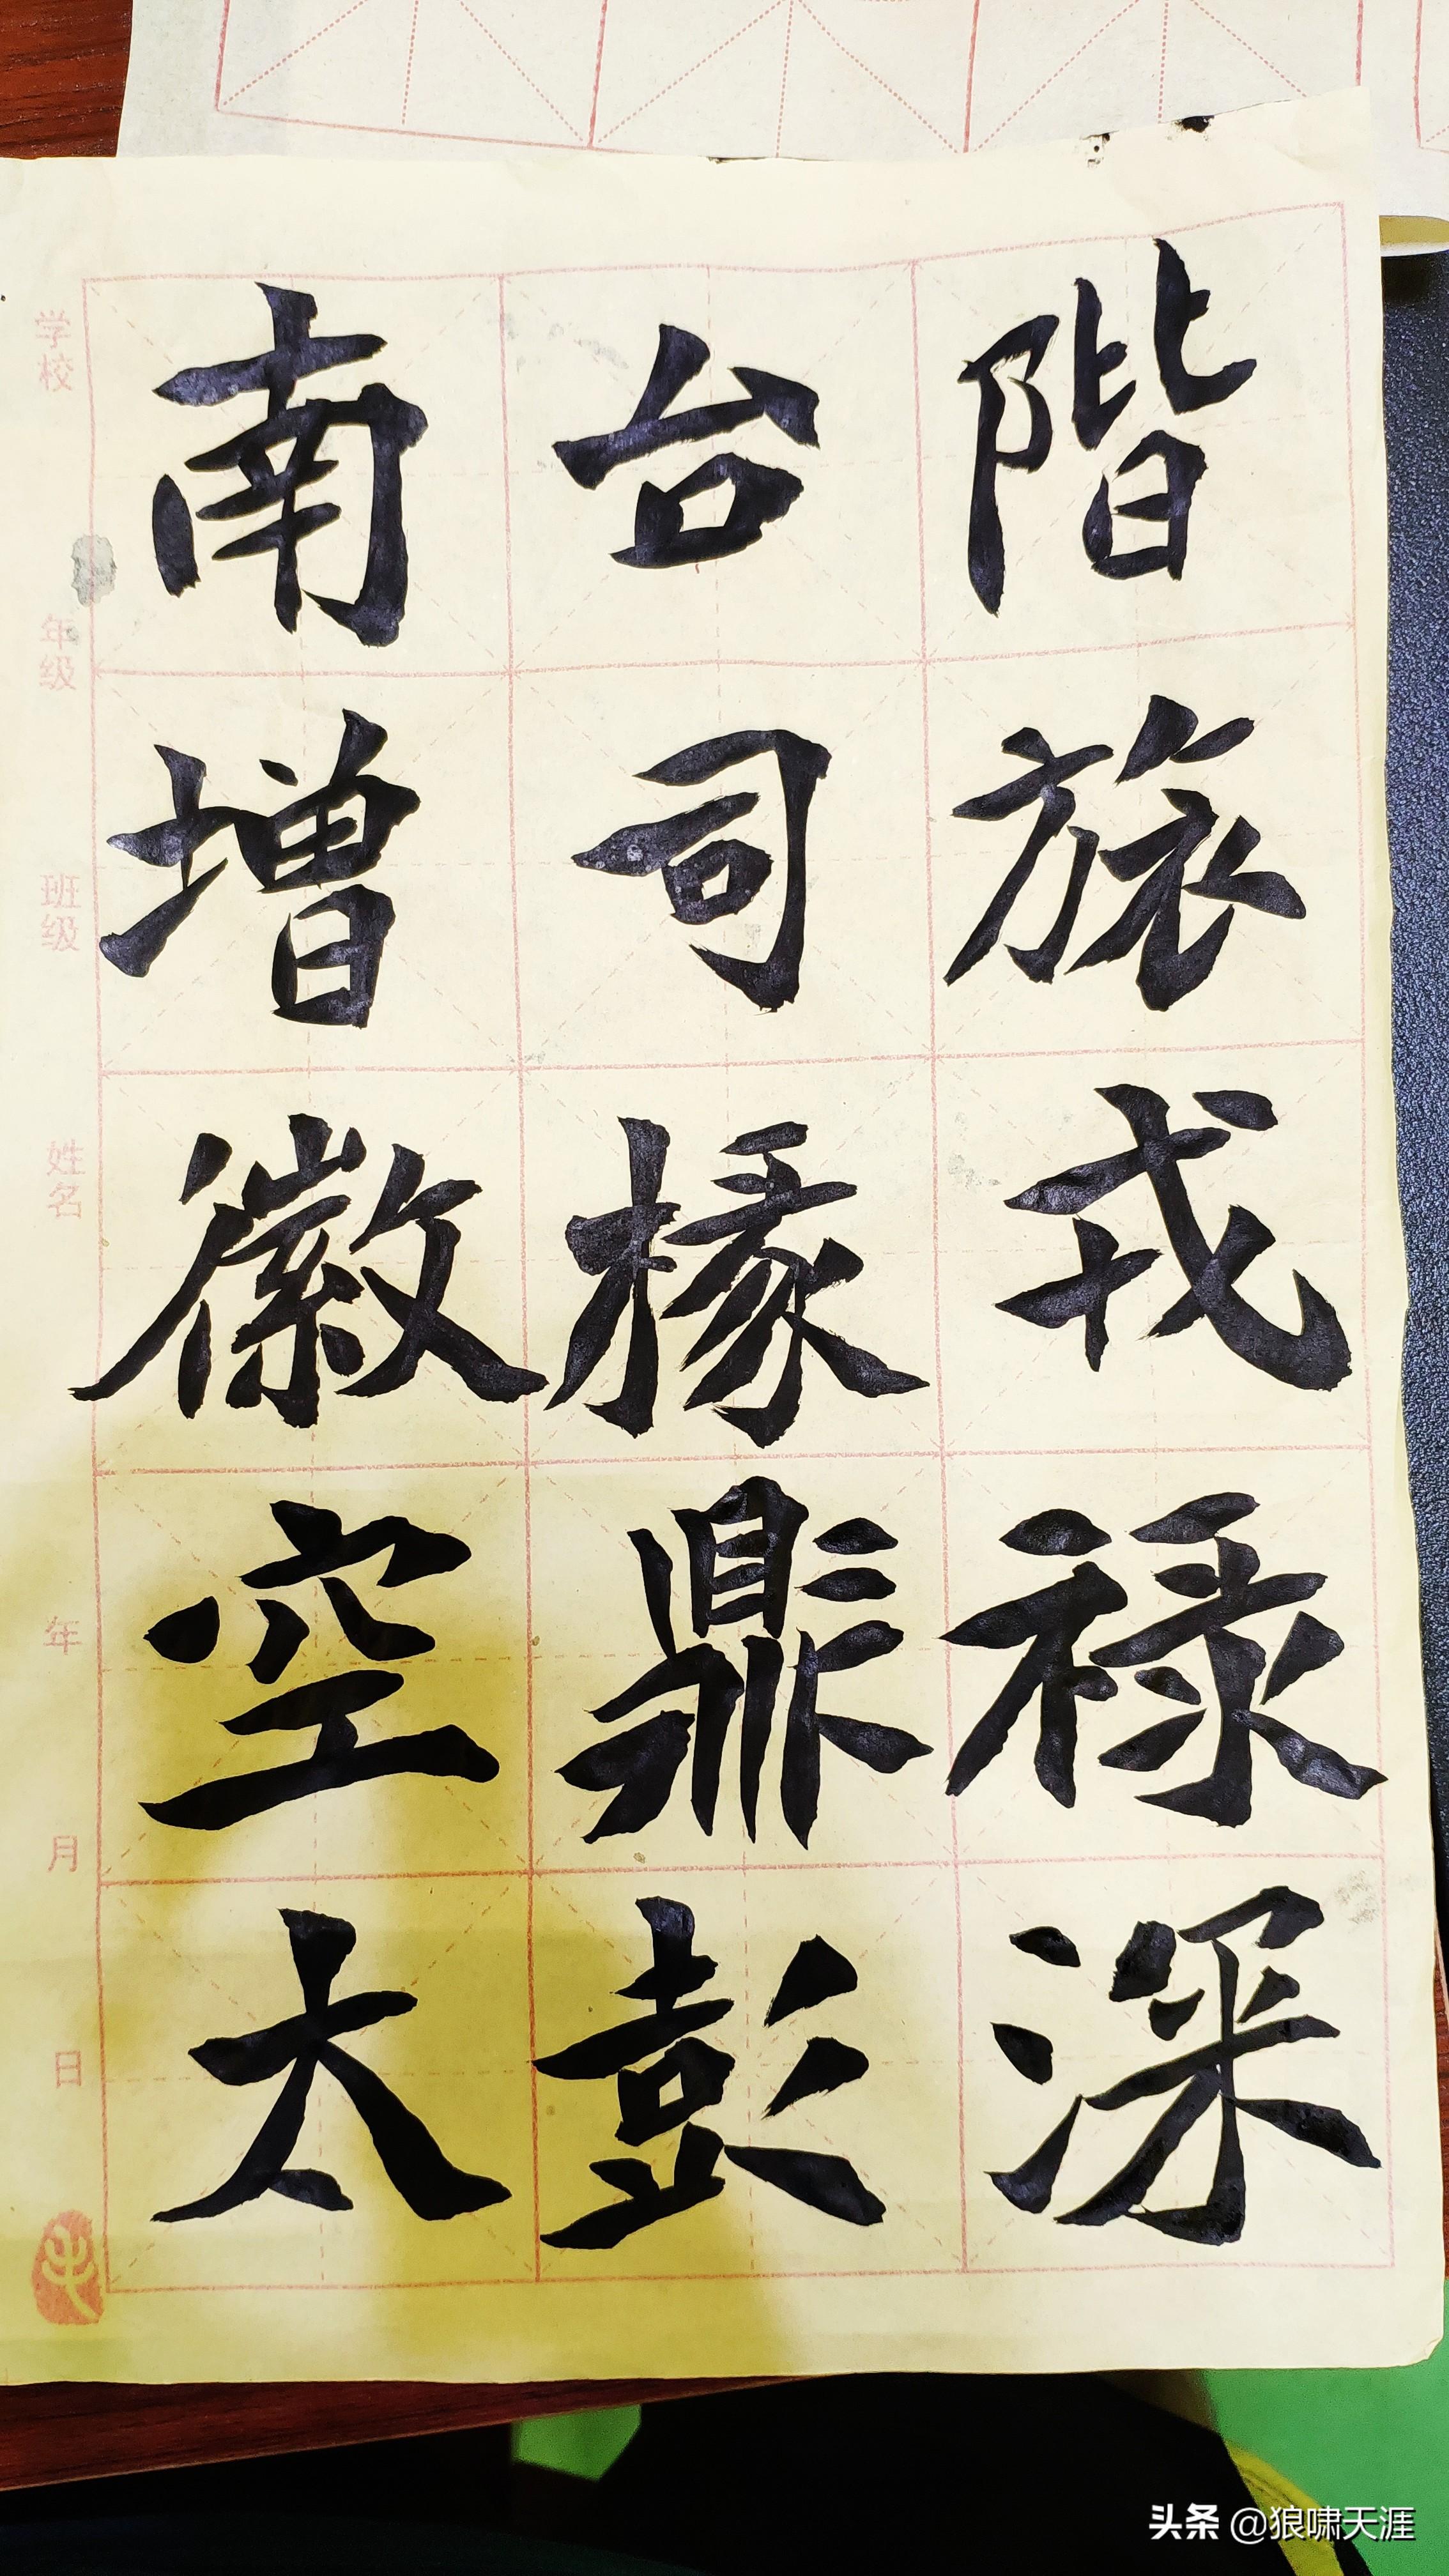 階旅戎禄深
台司椽鼎彭
南增徽空太
学校 年级 班级 姓名 年 月 日
头条 @狼啸天涯